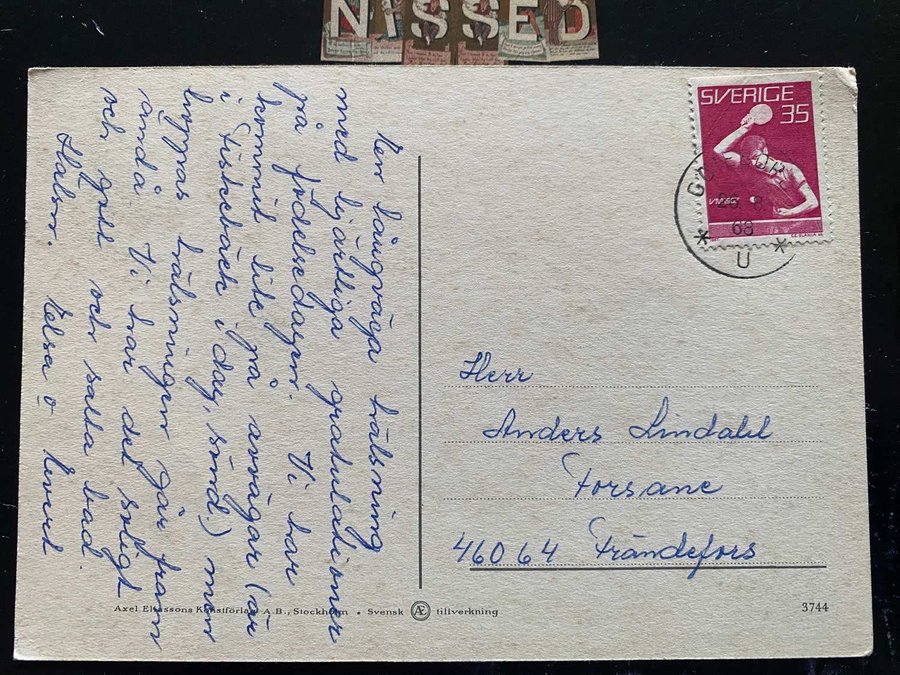 NISSED
En långväga hälsning
med hjärtliga gratulationer
på födelsedagen. Vi har
kommit lite på avvägar (är
i Fiskebäck i dag, sönd.) men
hoppas hälsningen går fram
ändå. Vi har det soligt
och gott och salta bad.
Hälsn. Elsa o Evert
SVERIGE
35
U
Herr
Anders Lindahl
Forsane
46064 Frändefors
Axel Eliassons Konstförlag A.B., Stockholm • Svensk Æ tillverkning
3744